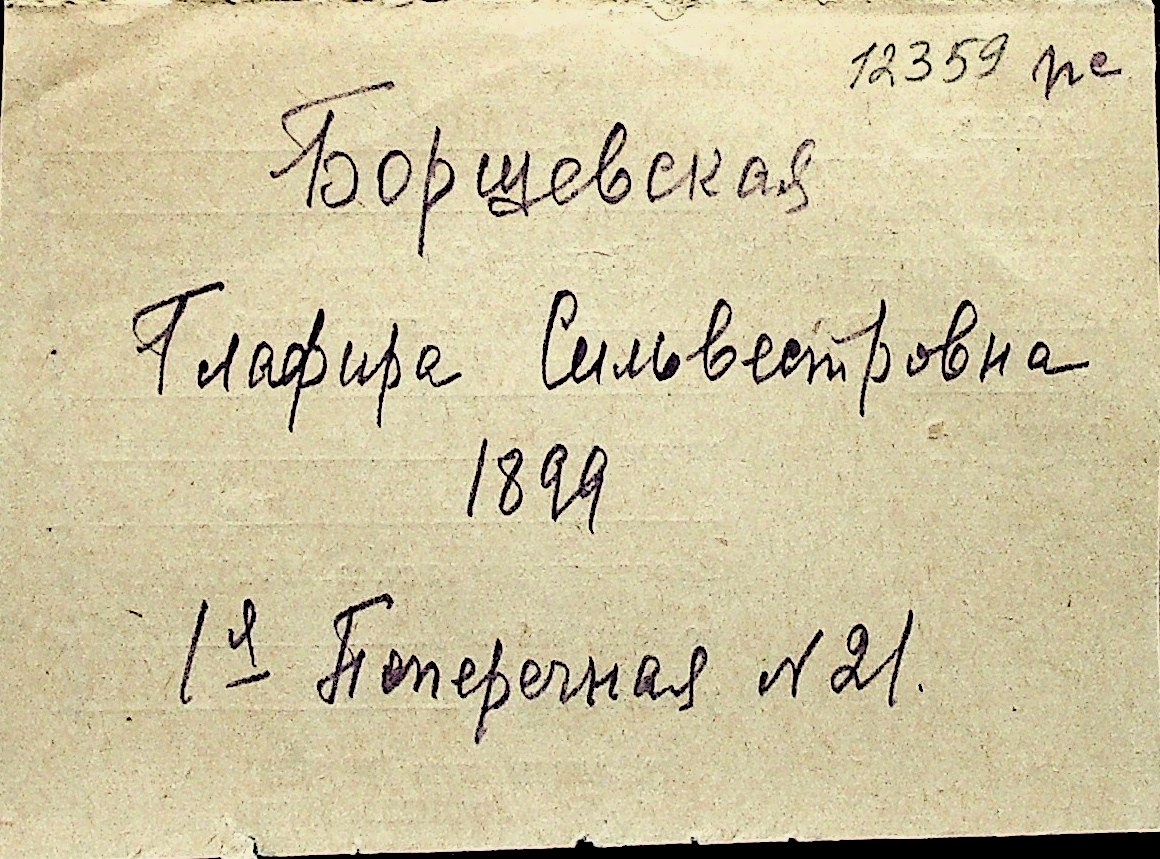 12359 рс
Борщевская
Глафира Сильвестровна
1899
1я Поперечная N 21.